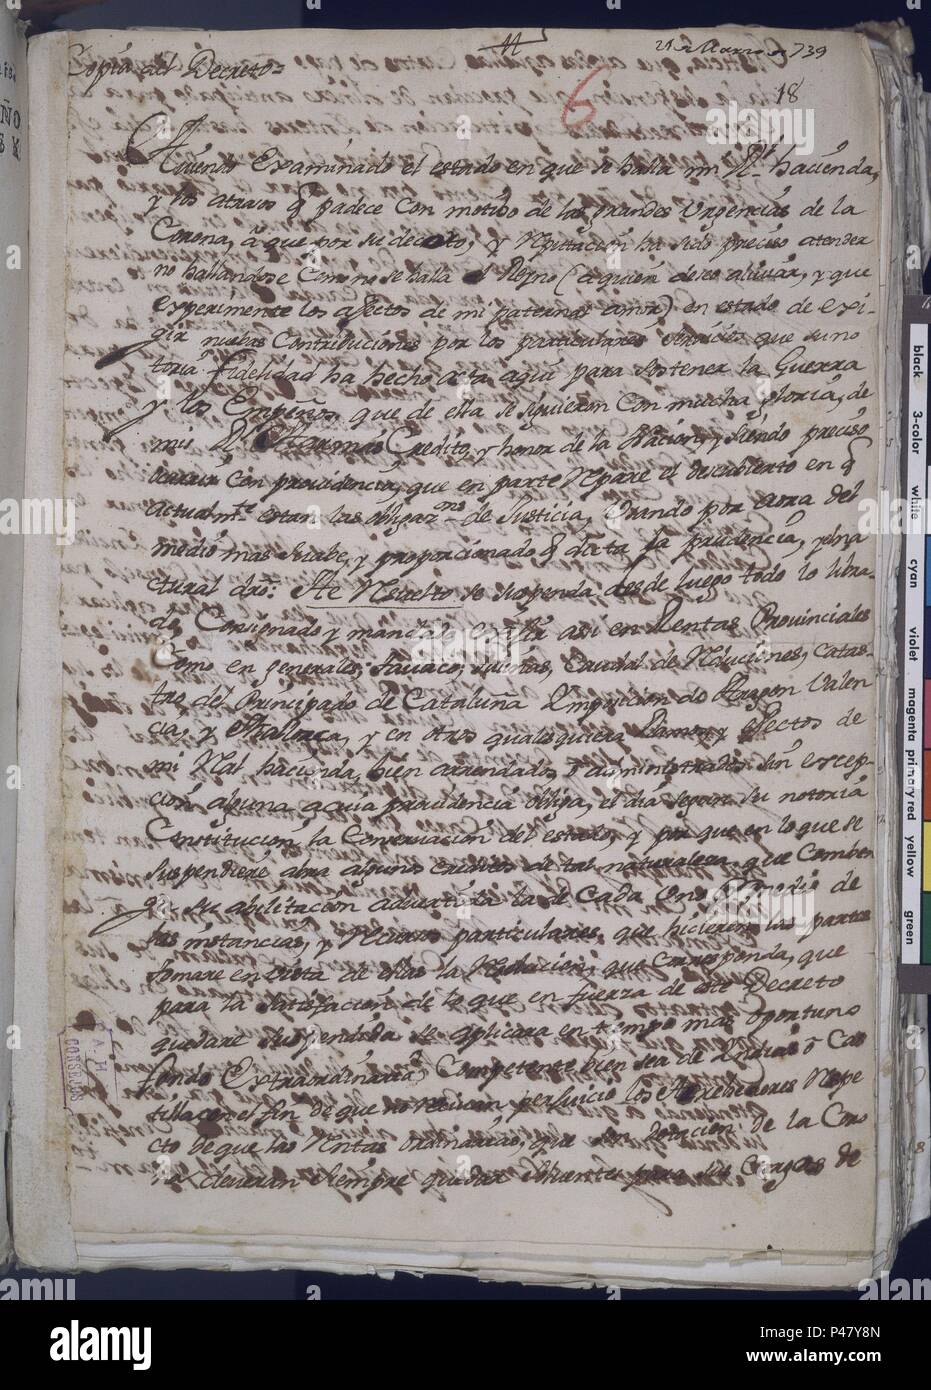 21 de Marzo de 739
Copia del Decreto=
18
6
Aviendo Examinado el estado en que se halla mi Rl. hacienda,
y los atrasos q padece con motibo de las grandes Urgencias de la
Corona, a que por su decoro, y Reputacion ha sido preciso atender
no hallandose Como no se halla el Reyno (a quien deseo aliviar, y que
experimente los efectos de mi paternal amor) en estado de exi-
gir nuebas Contribuciones por los particulares servicios que su no
toria fidelidad ha hecho asta aqui para sostener la Guerra
y los Empeños, que de ella se siguieron con mucha gloria, de
mis Rs. Armas Credito, y honor de la Nacion, y siendo preciso
ocurrir Con providencia, que en parte Repare el descubierto en q
actualmte. estan las obligazns. de Justicia, Usando por aora del
medio mas suabe, y proporcionado q dicta la prudencia, y el na
tural dro: He Resuelto se suspenda desde luego todo lo libra-
do, Consignado y mandado asi en Rentas Provinciales
Como en generales, tavaco, salinas, Caudal de Reducciones, Catas-
tro del Principado de Cataluña Imposicion de Aragon Valen
cia, y Mallorca, y en otros qualesquiera Ramos y efectos de
mi Real hacienda, bien arrendados, o administrados sin excep-
cion alguna a cuia providencia obliga, el dia segun su notoria
Constitucion la Conservacion del estado, y por que en lo que se
suspendiere abra algunos creditos de tal naturaleza, que Comben
ga su abilitacion advertida la de Cada Uno por medio de
las instancias, y Recursos particulares, que hicieren las partes
tomare en vista de ellas la Resolucion, que Corresponda, que
para la satisfacion de lo que en fuerza de este Decreto
quedare suspendido se aplicara en tiempo mas oportuno
fondo Extraordinario Competente bien sea de Indias o Cas
tilla con el fin de que no reciban perjuicio los Acrehedores Respe
cto de que las Rentas ordinarias, que son dotacion de la Coro
na deveran siempre quedar existentes para las Cargas de
A. H.
CONSEJOS
black
3-color
white
cyan
violet
magenta
primary red
yellow
green
alamy
alamy
P447Y8N
www.alamy.com